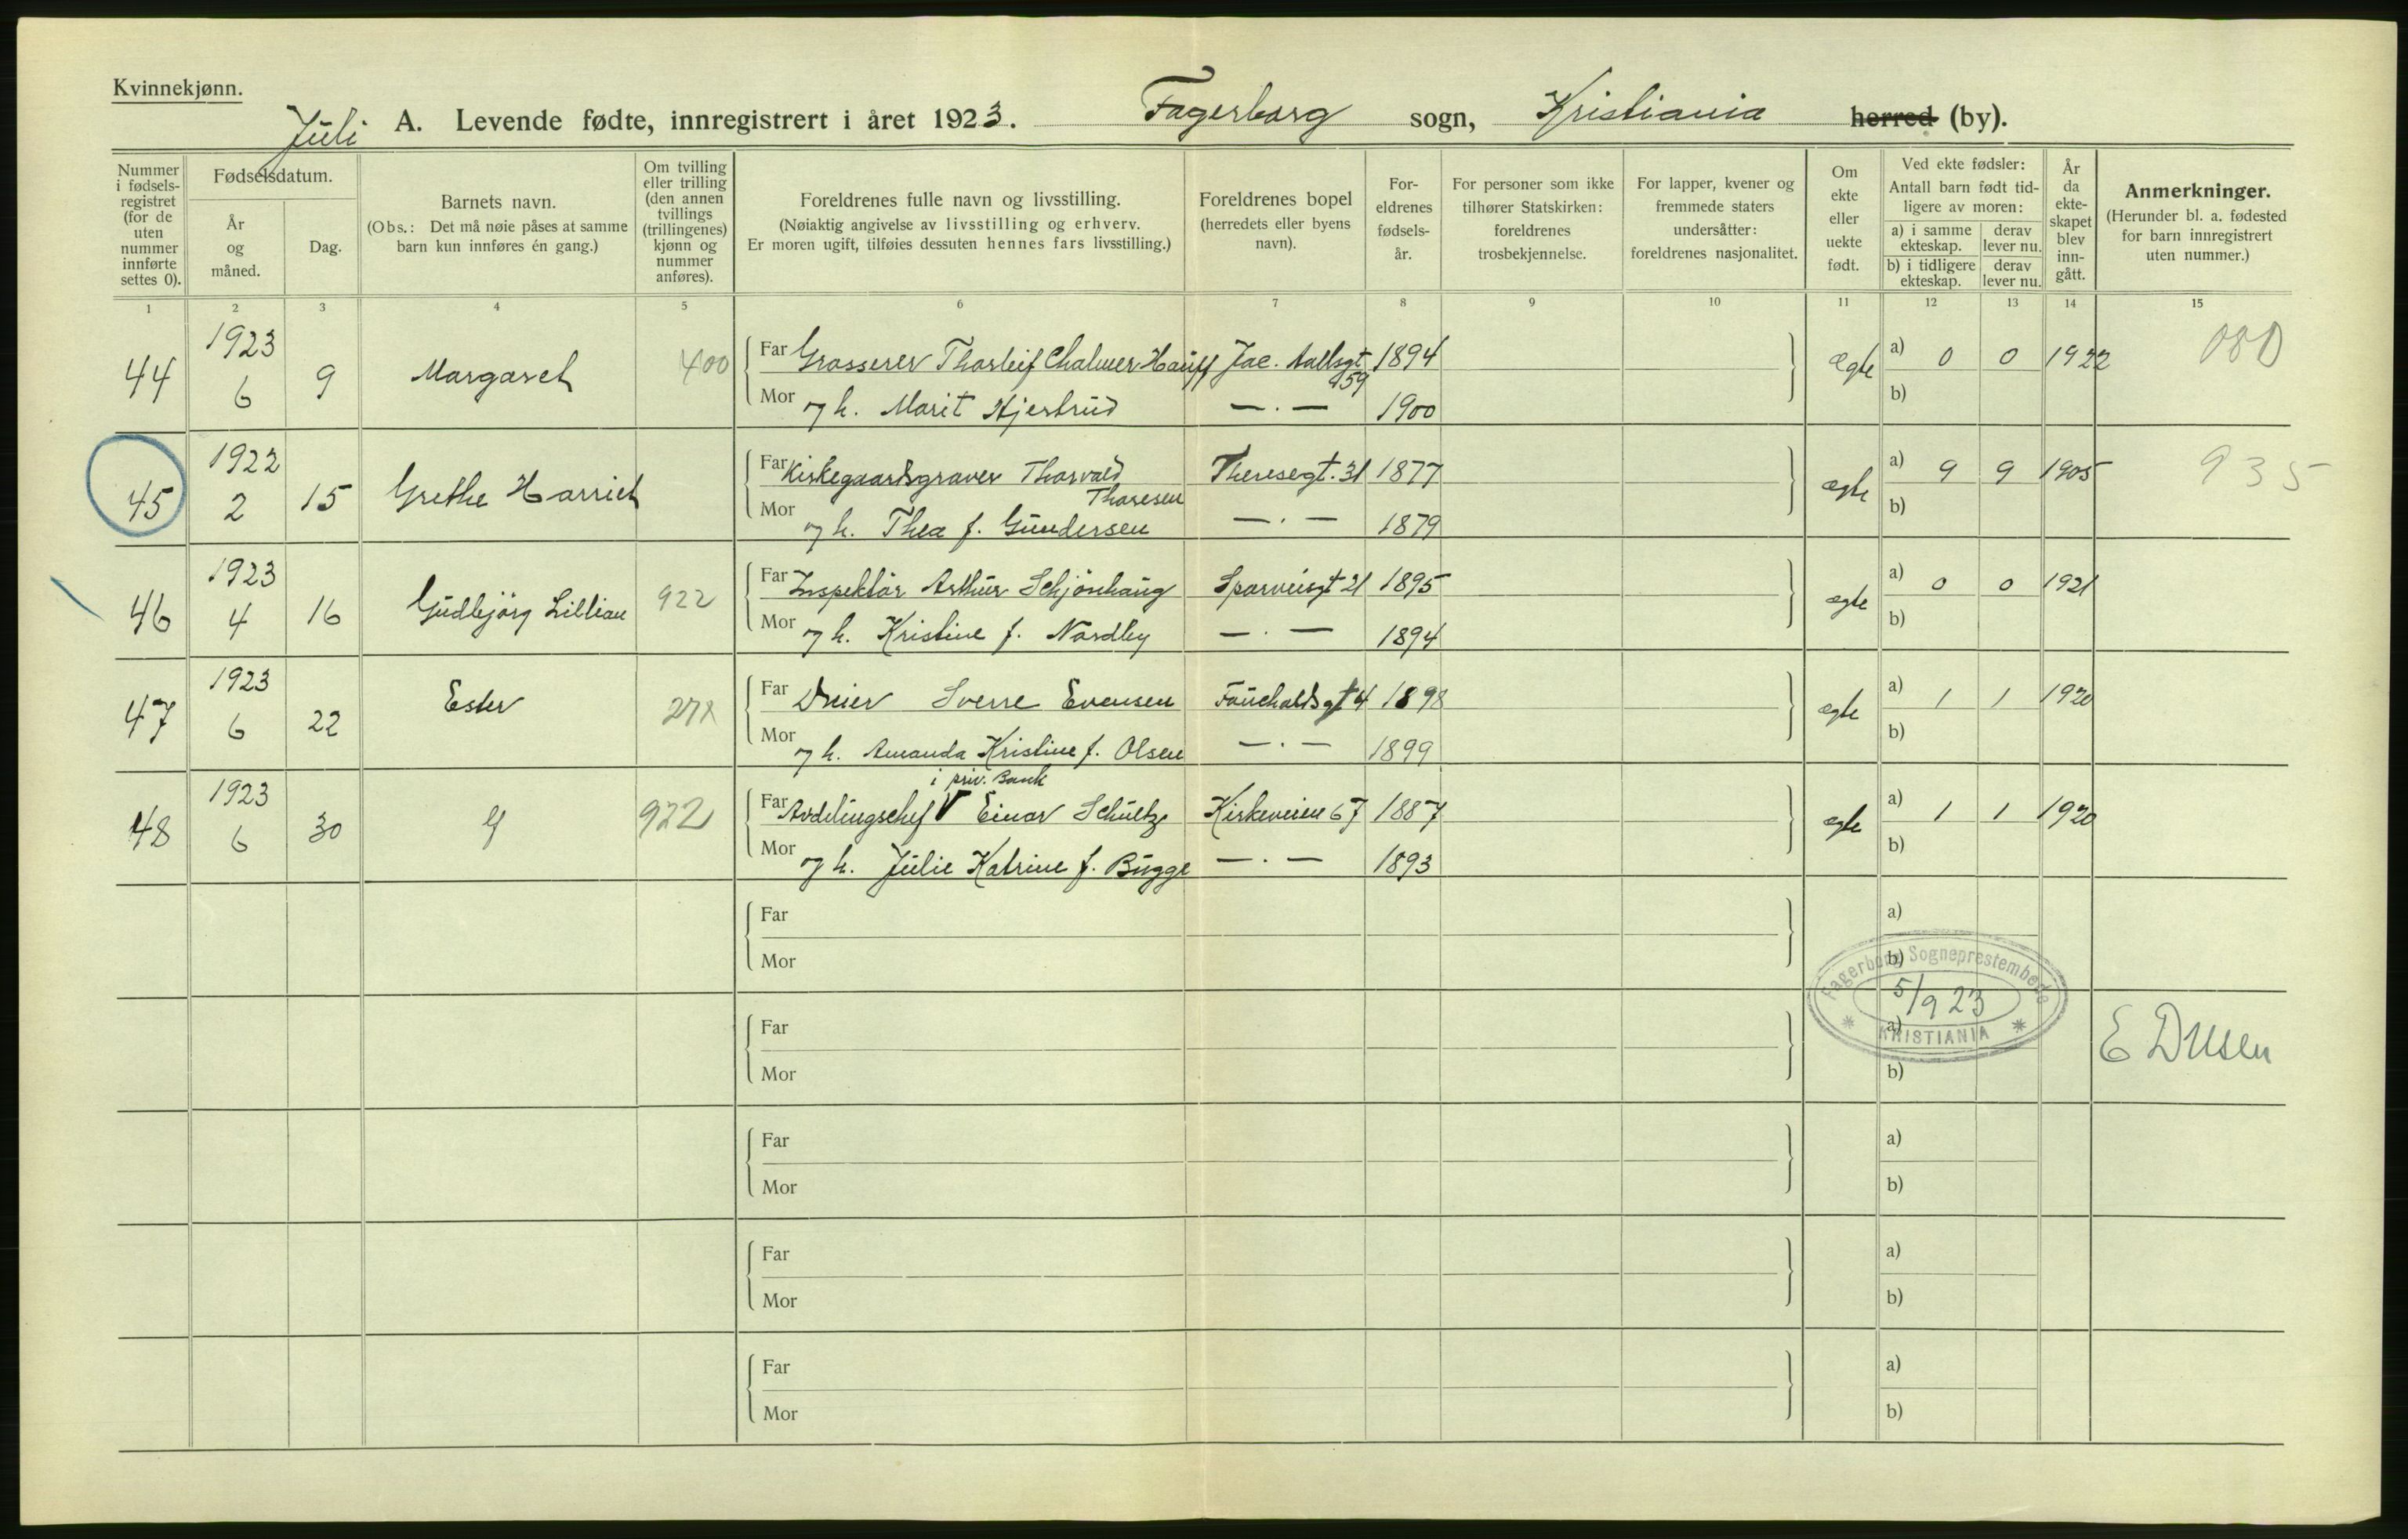 Kvinnekjønn.
Juli A. Levende fødte, innregistrert i året 1923. Fagerborg sogn, Kristiania herred (by).
Nummer i fødsels-registret (for de uten nummer innførte settes 0).
Fødselsdatum.
År og måned.
Dag.
Barnets navn.
(Obs.: Det må nøie påses at samme barn kun innføres én gang.)
Om tvilling eller trilling (den annen tvillings (trillingenes) kjønn og nummer anføres).
Foreldrenes fulle navn og livsstilling.
(Nøiaktig angivelse av livsstilling og erhverv.
Er moren ugift, tilføies dessuten hennes fars livsstilling.)
Foreldrenes bopel
(herredets eller byens navn).
For-eldrenes fødsels-år.
For personer som ikke tilhører Statskirken: foreldrenes trosbekjennelse.
For lapper, kvener og fremmede staters undersåtter: foreldrenes nasjonalitet.
Om ekte eller uekte født.
Ved ekte fødsler:
Antall barn født tid-ligere av moren:
a) i samme ekteskap.
derav lever nu.
b) i tidligere ekteskap.
derav lever nu.
År da ekte-skapet blev inn-gått.
Anmerkninger.
(Herunder bl. a. fødested for barn innregistrert uten nummer.)
1 2 3 4 5 6 7 8 9 10 11 12 13 14 15
44 1923 6 9 Margaret 400 Far Grosserer Thorleif Chalmer Hauff Jac. Aallsgt 59 1894 ægte a) 0 0 1922 080
Mor og h. Marit Hjertrud — . — 1900 b)
45 1922 2 15 Grethe Harriet Far Kirkegaardsgraver Thorvald Thoresen Theresegt. 31 1877 ægte a) 9 9 1905 935
Mor og h. Thea f. Gundersen — . — 1879 b)
46 1923 4 16 Gudbjörg Lillian 922 Far Inspektör Arthur Schjönhaug Sporveisgt 21 1895 ægte a) 0 0 1921
Mor og h. Kristine f. Nordby — . — 1894 b)
47 1923 6 22 Ester Far Dreier Sverre Evensen Fauchaldsgt 4 1898 ægte a) 1 1 1920
Mor og h. Amanda Kristine f. Olsen — . — 1899 b)
i priv. Bank
48 1923 6 30 G 922 Far Avdelingschef V Einar Schultze Kirkeveien 67 1887 ægte a) 1 1 1920
Mor og h. Julie Katrine f. Bugge — . — 1893 b)
Far a)
Mor b)
Fagerborg Sogneprestembede
5/9 23
KRISTIANIA
Far a)
E
Mor b)
Far a)
Mor b)
Far a)
Mor b)
Far a)
Mor b)